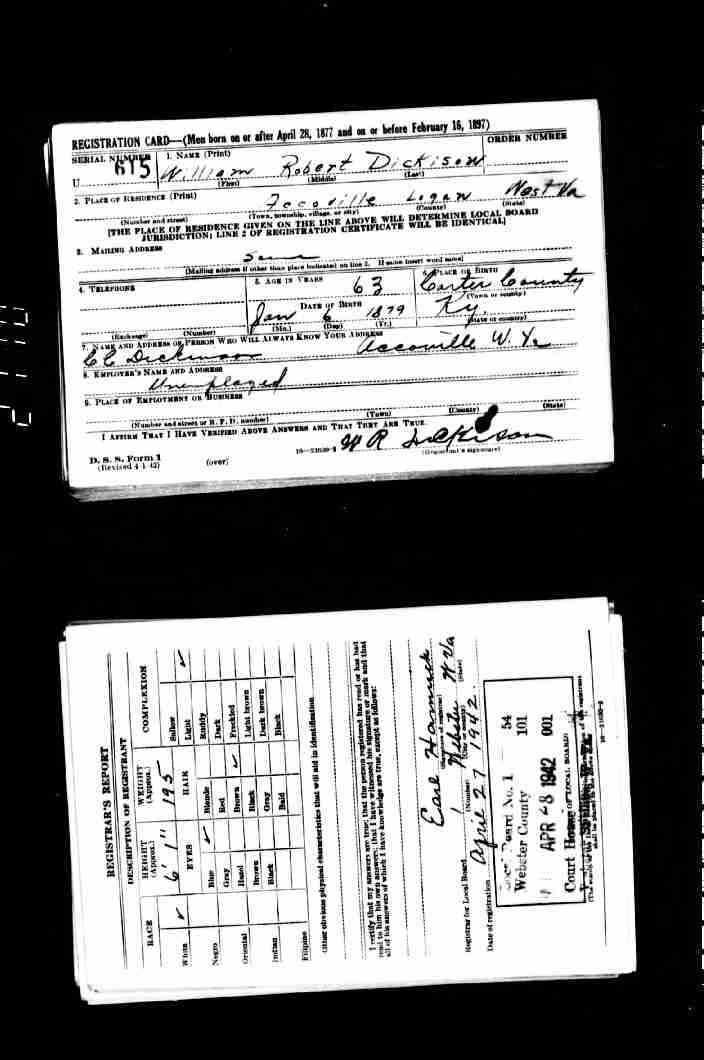 REGISTRATION CARD—(Men born on or after April 28, 1877 and on or before February 16, 1897)
SERIAL NUMBER 1. NAME (Print) ORDER NUMBER
U 615 William Robert Dickison
(First) (Middle) (Last)
2. PLACE OF RESIDENCE (Print)
Accoville Logan West Va
(Number and street) (Town, township, village, or city) (County) (State)
[THE PLACE OF RESIDENCE GIVEN ON THE LINE ABOVE WILL DETERMINE LOCAL BOARD
JURISDICTION; LINE 2 OF REGISTRATION CERTIFICATE WILL BE IDENTICAL]
3. MAILING ADDRESS
Same
[Mailing address if other than place indicated on line 2. If same insert word same]
4. TELEPHONE 5. AGE IN YEARS 6. PLACE OF BIRTH
63 Carter County
DATE OF BIRTH (Town or county)
Jan 6 1879 Ky.
(Exchange) (Number) (Mo.) (Day) (Yr.) (State or country)
7. NAME AND ADDRESS OF PERSON WHO WILL ALWAYS KNOW YOUR ADDRESS
C C Dickinson Accoville W. Va
8. EMPLOYER'S NAME AND ADDRESS
Unemployed
9. PLACE OF EMPLOYMENT OR BUSINESS
(Number and street or R. F. D. number) (Town) (County) (State)
I AFFIRM THAT I HAVE VERIFIED ABOVE ANSWERS AND THAT THEY ARE TRUE.
W R Dickison
D. S. S. Form 1 (over) 16—21630-2 (Registrant's signature)
(Revised 4-1-42)
REGISTRAR'S REPORT
DESCRIPTION OF REGISTRANT
RACE HEIGHT (Approx.) WEIGHT (Approx.) COMPLEXION
6' 1" 195
EYES HAIR
White ✓ Blue ✓ Blonde Sallow
Light ✓
Negro Gray Red Ruddy
Dark
Oriental Hazel Brown ✓ Freckled
Light brown
Indian Brown Black Dark brown
Black Gray Black
Filipino Bald
Other obvious physical characteristics that will aid in identification
I certify that my answers are true; that the person registered has read or has had
read to him his own answers; that I have witnessed his signature or mark and that
all of his answers of which I have knowledge are true, except as follows:
Earl Hamrick
(Signature of registrar)
Registrar for Local Board 1 Webster W Va
(Number) (City or county) (State)
Date of registration April 27 1942.
Local Board No. 1 54
Webster County 101
APR 28 1942 001
Court House
OF LOCAL BOARD)